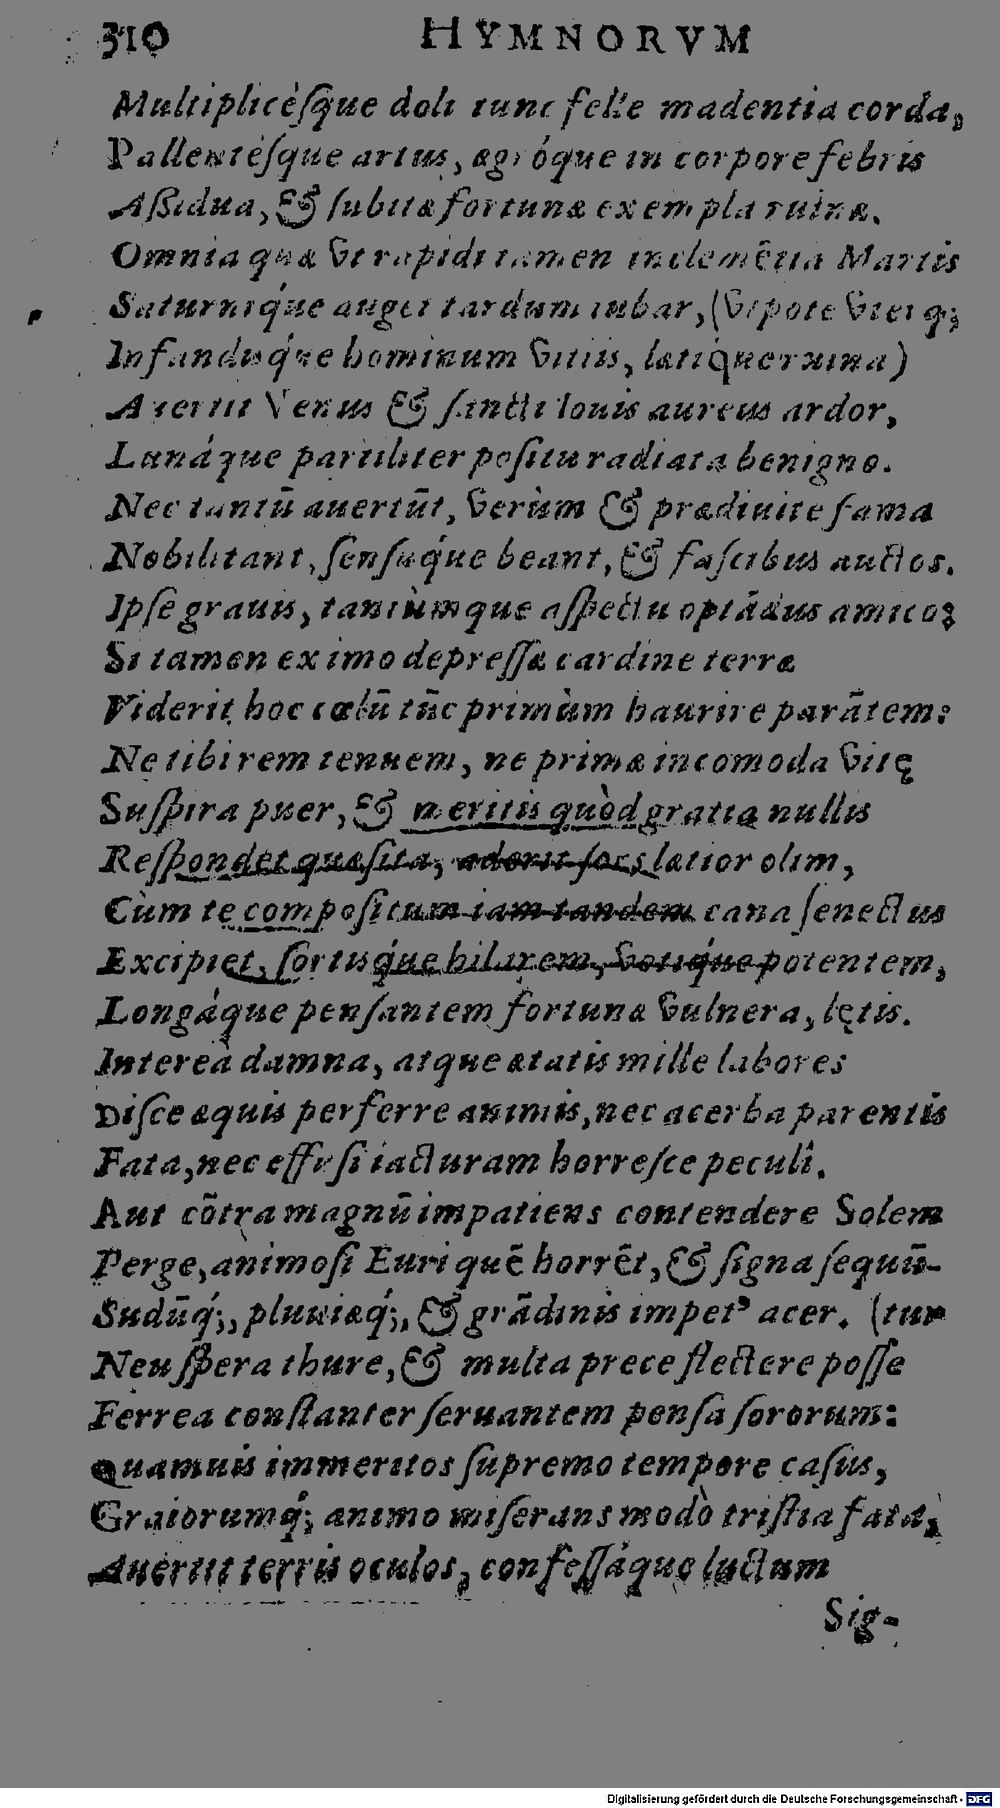 310 HYMNORVM
Multiplicésque doli tunc felle madentia corda,
Pallentésque artus, ægróque in corpore febris
Aßidua, & subitæ fortunæ exempla ruinæ.
Omnia quæ vt rapidi tamen inclemẽtia Martis
Saturniq́ue auget tardum iubar, (vtpote vterq;
Infanduq́ue hominum vitiis, latiquerxina)
Auertit Venus & sancti Iouis aureus ardor,
Lunáque partiliter positu radiata benigno.
Nec tantũ auertũt, verùm & prædiuite fama
Nobilitant, sensuq́ue beant, & fascibus auctos.
Ipse grauis, tantùmque aspectu optãdus amico;
Si tamen eximo depressæ cardine terræ
Viderit hoc cœlũ tũc primùm haurire parãtem:
Ne tibi rem tenuem, ne primæ incomoda vitę
Suspira puer, & meritis quòd gratia nullis
Respondet quæsita, aderit sors lætior olim,
Cùm te compositum iam tandem cana senectus
Excipiet, sortisq́ue hilarem, votiq́ue potentem,
Longáque pensantem fortunæ vulnera, lętis.
Intereà damna, atque ætatis mille labores
Disce æquis perferre animis, nec acerba parentis
Fata, nec effusi iacturam horresce peculî.
Aut cõtra magnũ impatiens contendere Solem
Perge, animosi Euri quẽ horrẽt, & signa sequũ-
Sudũq́;, pluuiæq́;, & grãdinis impet⁹ acer. (tur
Neu spera thure, & multa prece flectere posse
Ferrea constanter seruantem pensa sororum:
Quamuis immeritos supremo tempore casus,
Graiorumq́; animo miserans modò tristia fata,
Auertit terris oculos, confessáque luctum
Sig-
Digitalisierung gefördert durch die Deutsche Forschungsgemeinschaft - DFG